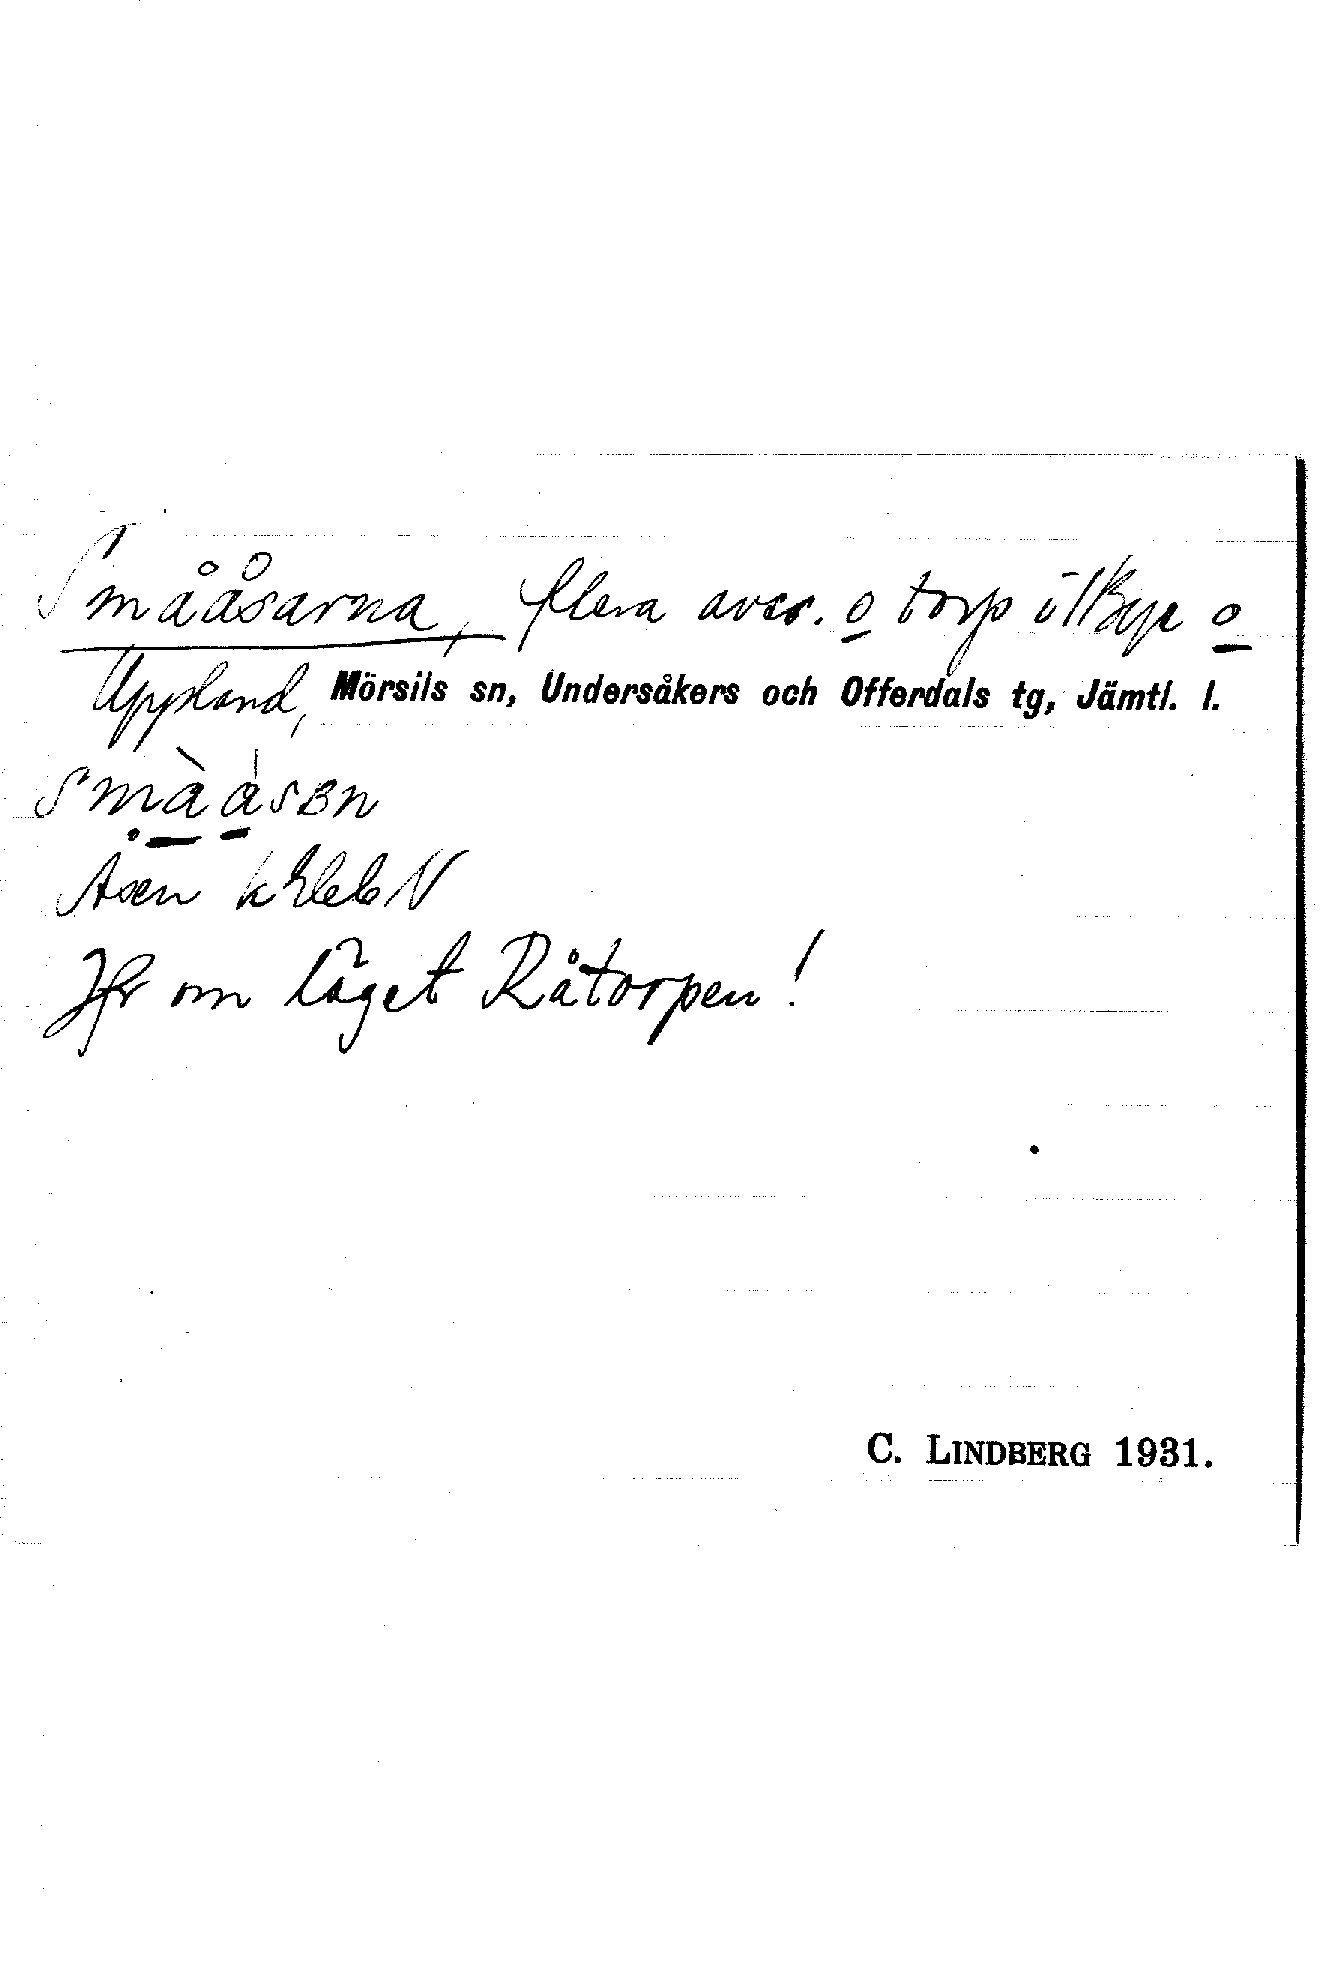 Smååsarna, flera avss. o torp i Bye o
Uppland, Mörsils sn, Undersåkers och Offerdals tg, Jämtl. l.
Åsen
Jfr om läget Råtorpen!
C. LINDBERG 1931.